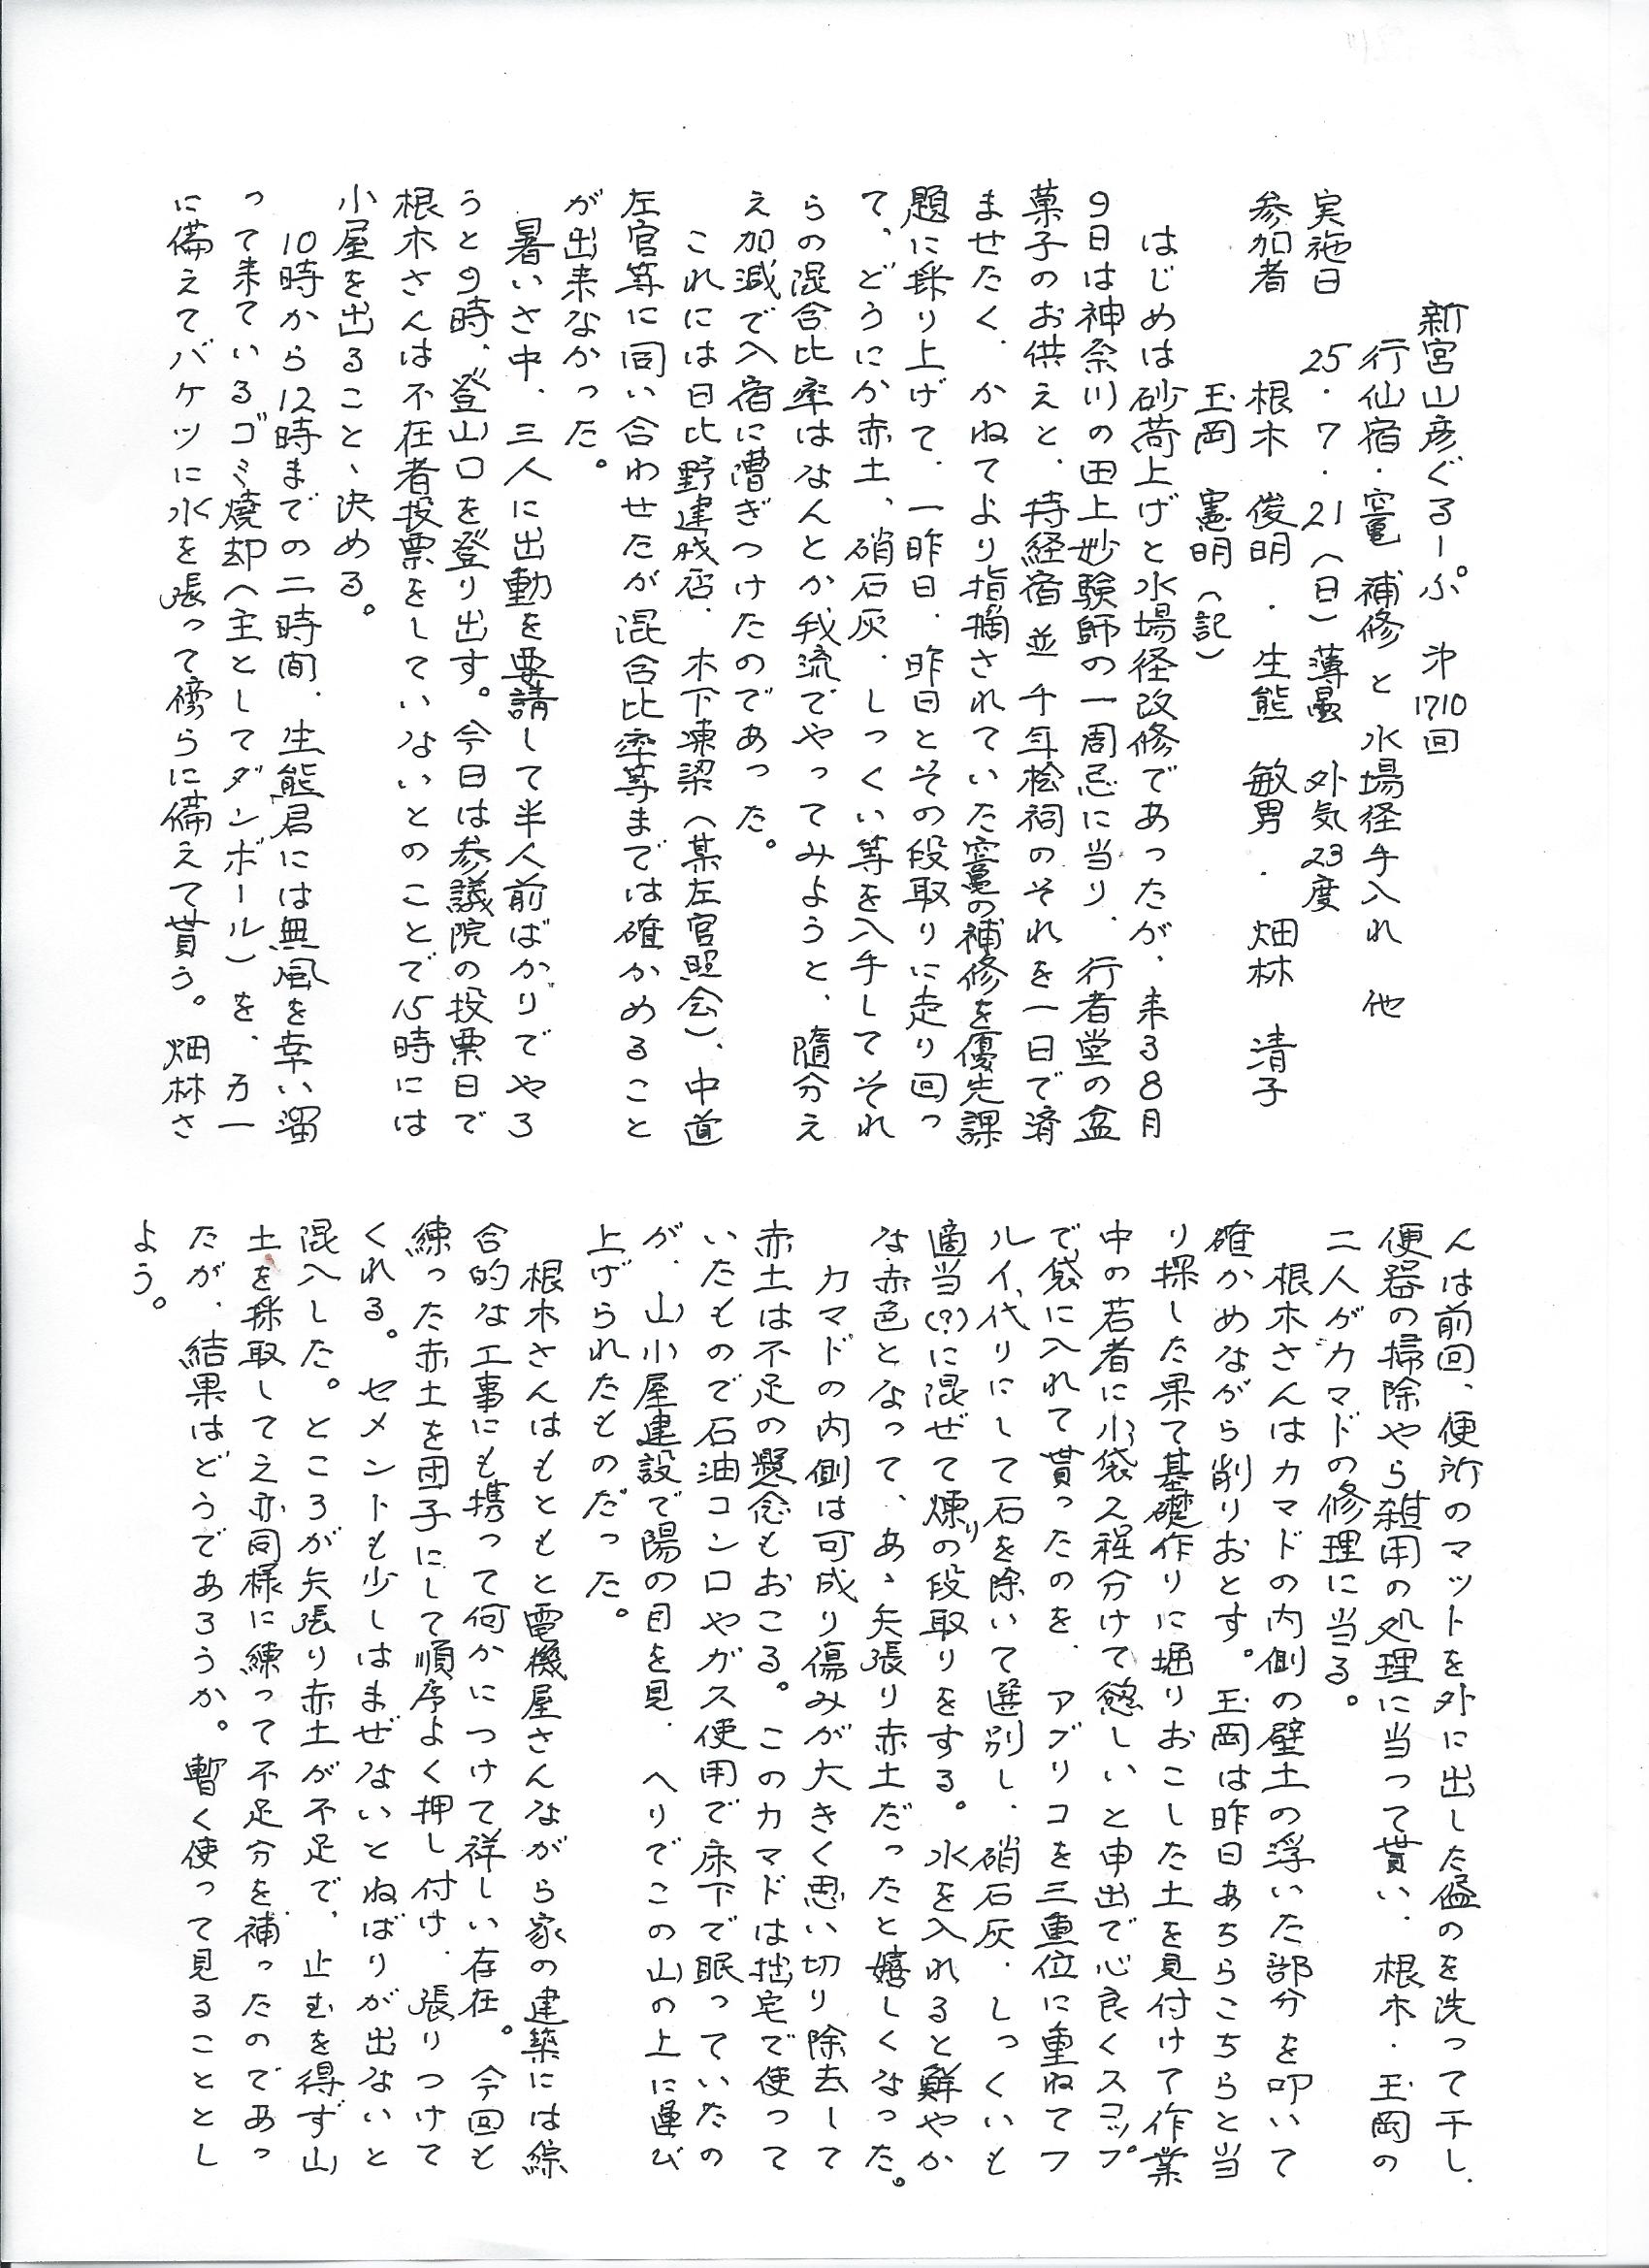 新宮山彦ぐるーぷ 第1710回
行仙宿・竈 補修と水場径手入れ 他
実施日 25・7・21(日)薄曇 外気23度
参加者 根木 俊明・生熊 敏男・畑林 清子
玉岡 憲明(記)
はじめは砂荷上げと水場径改修であったが、来る8月
9日は神奈川の田上妙験師の一周忌に当り、行者堂の盆
菓子のお供えと、持経宿並 千年桧祠のそれを一日で済
ませたく、かねてより指摘されていた竈の補修を優先課
題に採り上げて、一昨日、昨日とその段取りに走り回っ
て、どうにか赤土、硝石灰、しっくい等を入手してそれ
らの混合比率はなんとか我流でやってみようと、随分え
え加減で入宿に漕ぎつけたのであった。
これには日比野建成店、木下棟梁(某左官照会)、中道
左官等に問い合わせたが混合比率等までは確かめること
が出来なかった。
暑いさ中、三人に出動を要請して半人前ばかりでやろ
うと9時、登山口を登り出す。今日は参議院の投票日で
根木さんは不在者投票をしていないとのことで15時には
小屋を出ること、決める。
10時から12時までの二時間、生熊君には無風を幸い溜
って来ているゴミ焼却(主としてダンボール)を、万一
に備えてバケツに水を張って傍らに備えて貰う。畑林さ
んは前回、便所のマットを外に出した儘のを洗って干し、
便器の掃除やら雑用の処理に当って貰い、根木・玉岡の
二人がカマドの修理に当る。
根木さんはカマドの内側の壁土の浮いた部分を叩いて
確かめながら削りおとす。玉岡は昨日あちらこちらと当
り探した果て基礎作りに堀りおこした土を見付けて作業
中の若者に小袋ス程分けて慾しいと申出で心良くスコップ
で袋に入れて貰ったのを、アブリコを三重位に重ねてフ
ルイ代りにして石を除いて選別し、硝石灰、しっくいも
適当(?)に混ぜて煉りの段取りをする。水を入れると鮮やか
な赤色となって、あゝ矢張り赤土だったと嬉しくなった。
カマドの内側は可成り傷みが大きく思い切り除去して
赤土は不足の懸念もおこる。このカマドは拙宅で使って
いたもので石油コンロやガス使用で床下で眠っていたの
が、山小屋建設で陽の目を見、ヘリでこの山の上に運び
上げられたものだった。
根木さんはもともと電機屋さんながら家の建築には綜
合的な工事にも携って何かにつけて祥しい存在。今回も
練った赤土を団子にして順序よく押し付け、張りつけて
くれる。セメントも少しはまぜないとねばりが出ないと
混入した。ところが矢張り赤土が不足で、止むを得ず山
土を採取して之亦同様に練って不足分を補ったのであっ
たが、結果はどうであろうか。暫く使って見ることとし
よう。